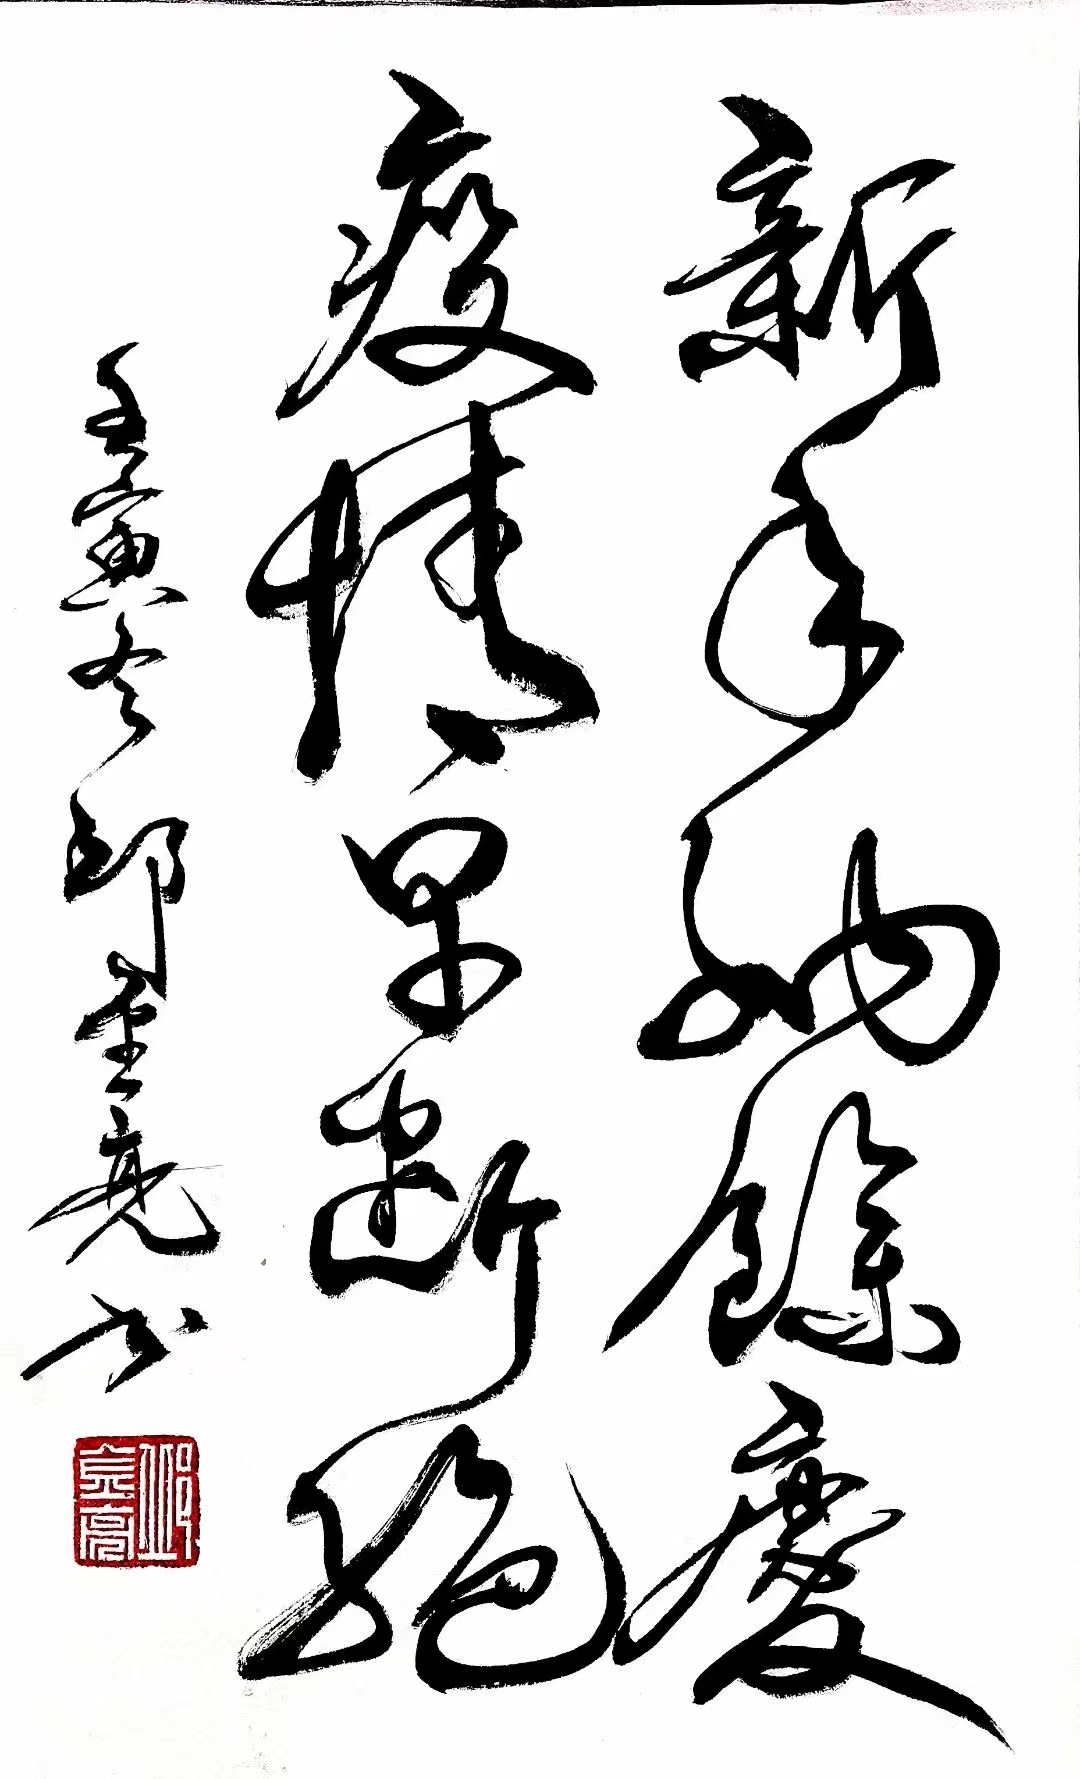 新年納餘慶
疫情早断絕
壬寅冬邱奎亮书
邱奎亮